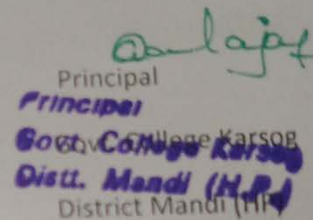 Principal
Principal
Govt. College Karsog
Govt. College Karsog
Distt. Mandi (H.P.)
District Mandi (HP)